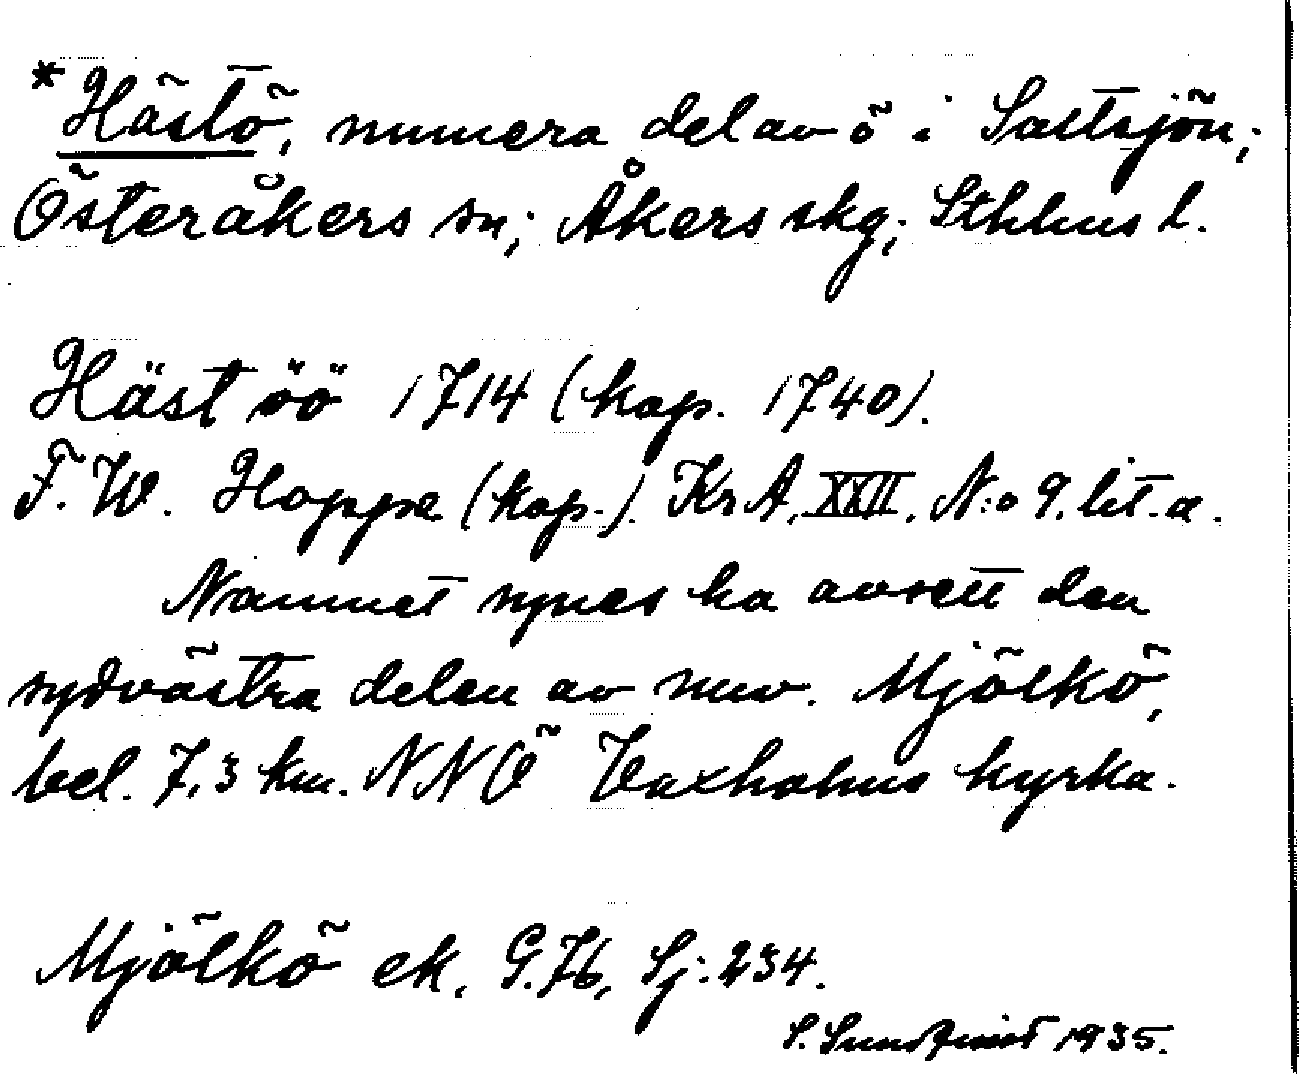 *Hästö, numera del av ö i Saltsjön;
Österåkers sn; Åkers skg; Sthlms l.
Häst öö 1714 (kop. 1740).
F. W. Hoppe (kop.). KrA, XXII, N:o 9. lit. a.
Namnet synes ha avsett den
sydvästra delen av nuv. Mjölkö,
bel. 7,3 km. NNÖ Vaxholms kyrka.
Mjölkö ek. G.76, Sj: 234.
S. Sundqvist 1935.